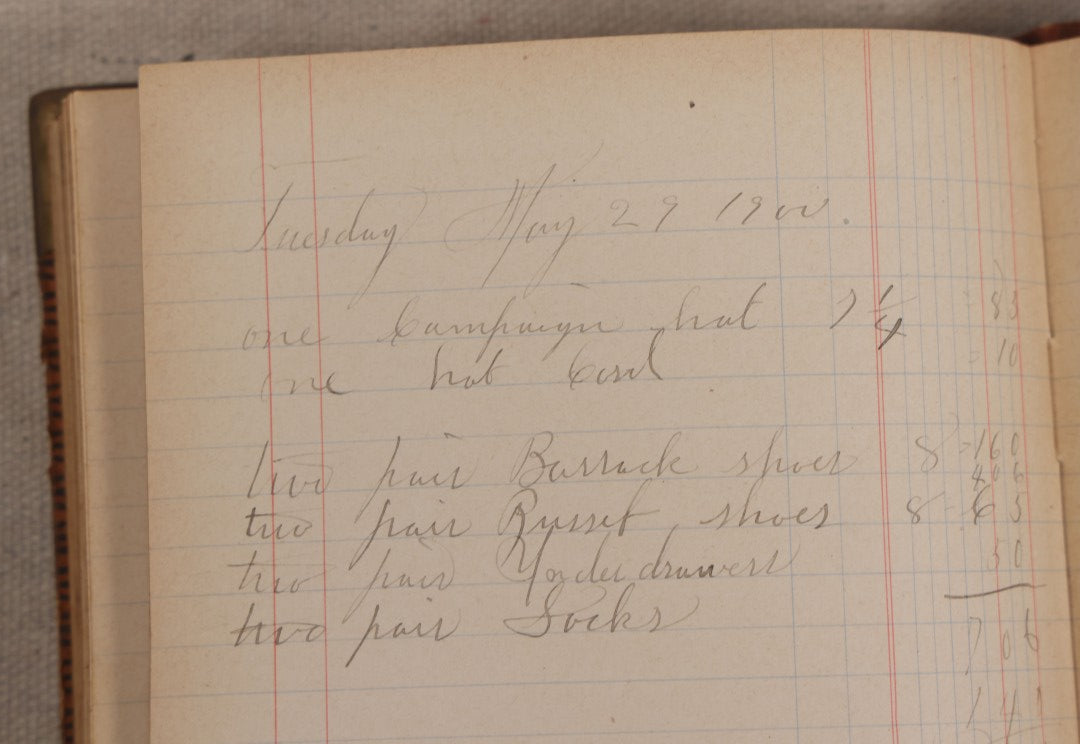 Tuesday May 29 1900.
one Campaign hat 7 1/4 83
one hat Cord 10
two pair Barrack shoes 8 - 160
406
two pair Russet shoes 8 - 65
two pair drawers 50
two pair Socks
7 06
1 4